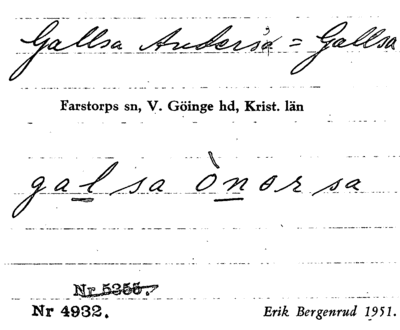 Gallsa Andersa = Gallsa
Farstorps sn, V. Göinge hd, Krist. län
galsa ònərsa
Nr 5355.
Nr 4932. Erik Bergenrud 1951.